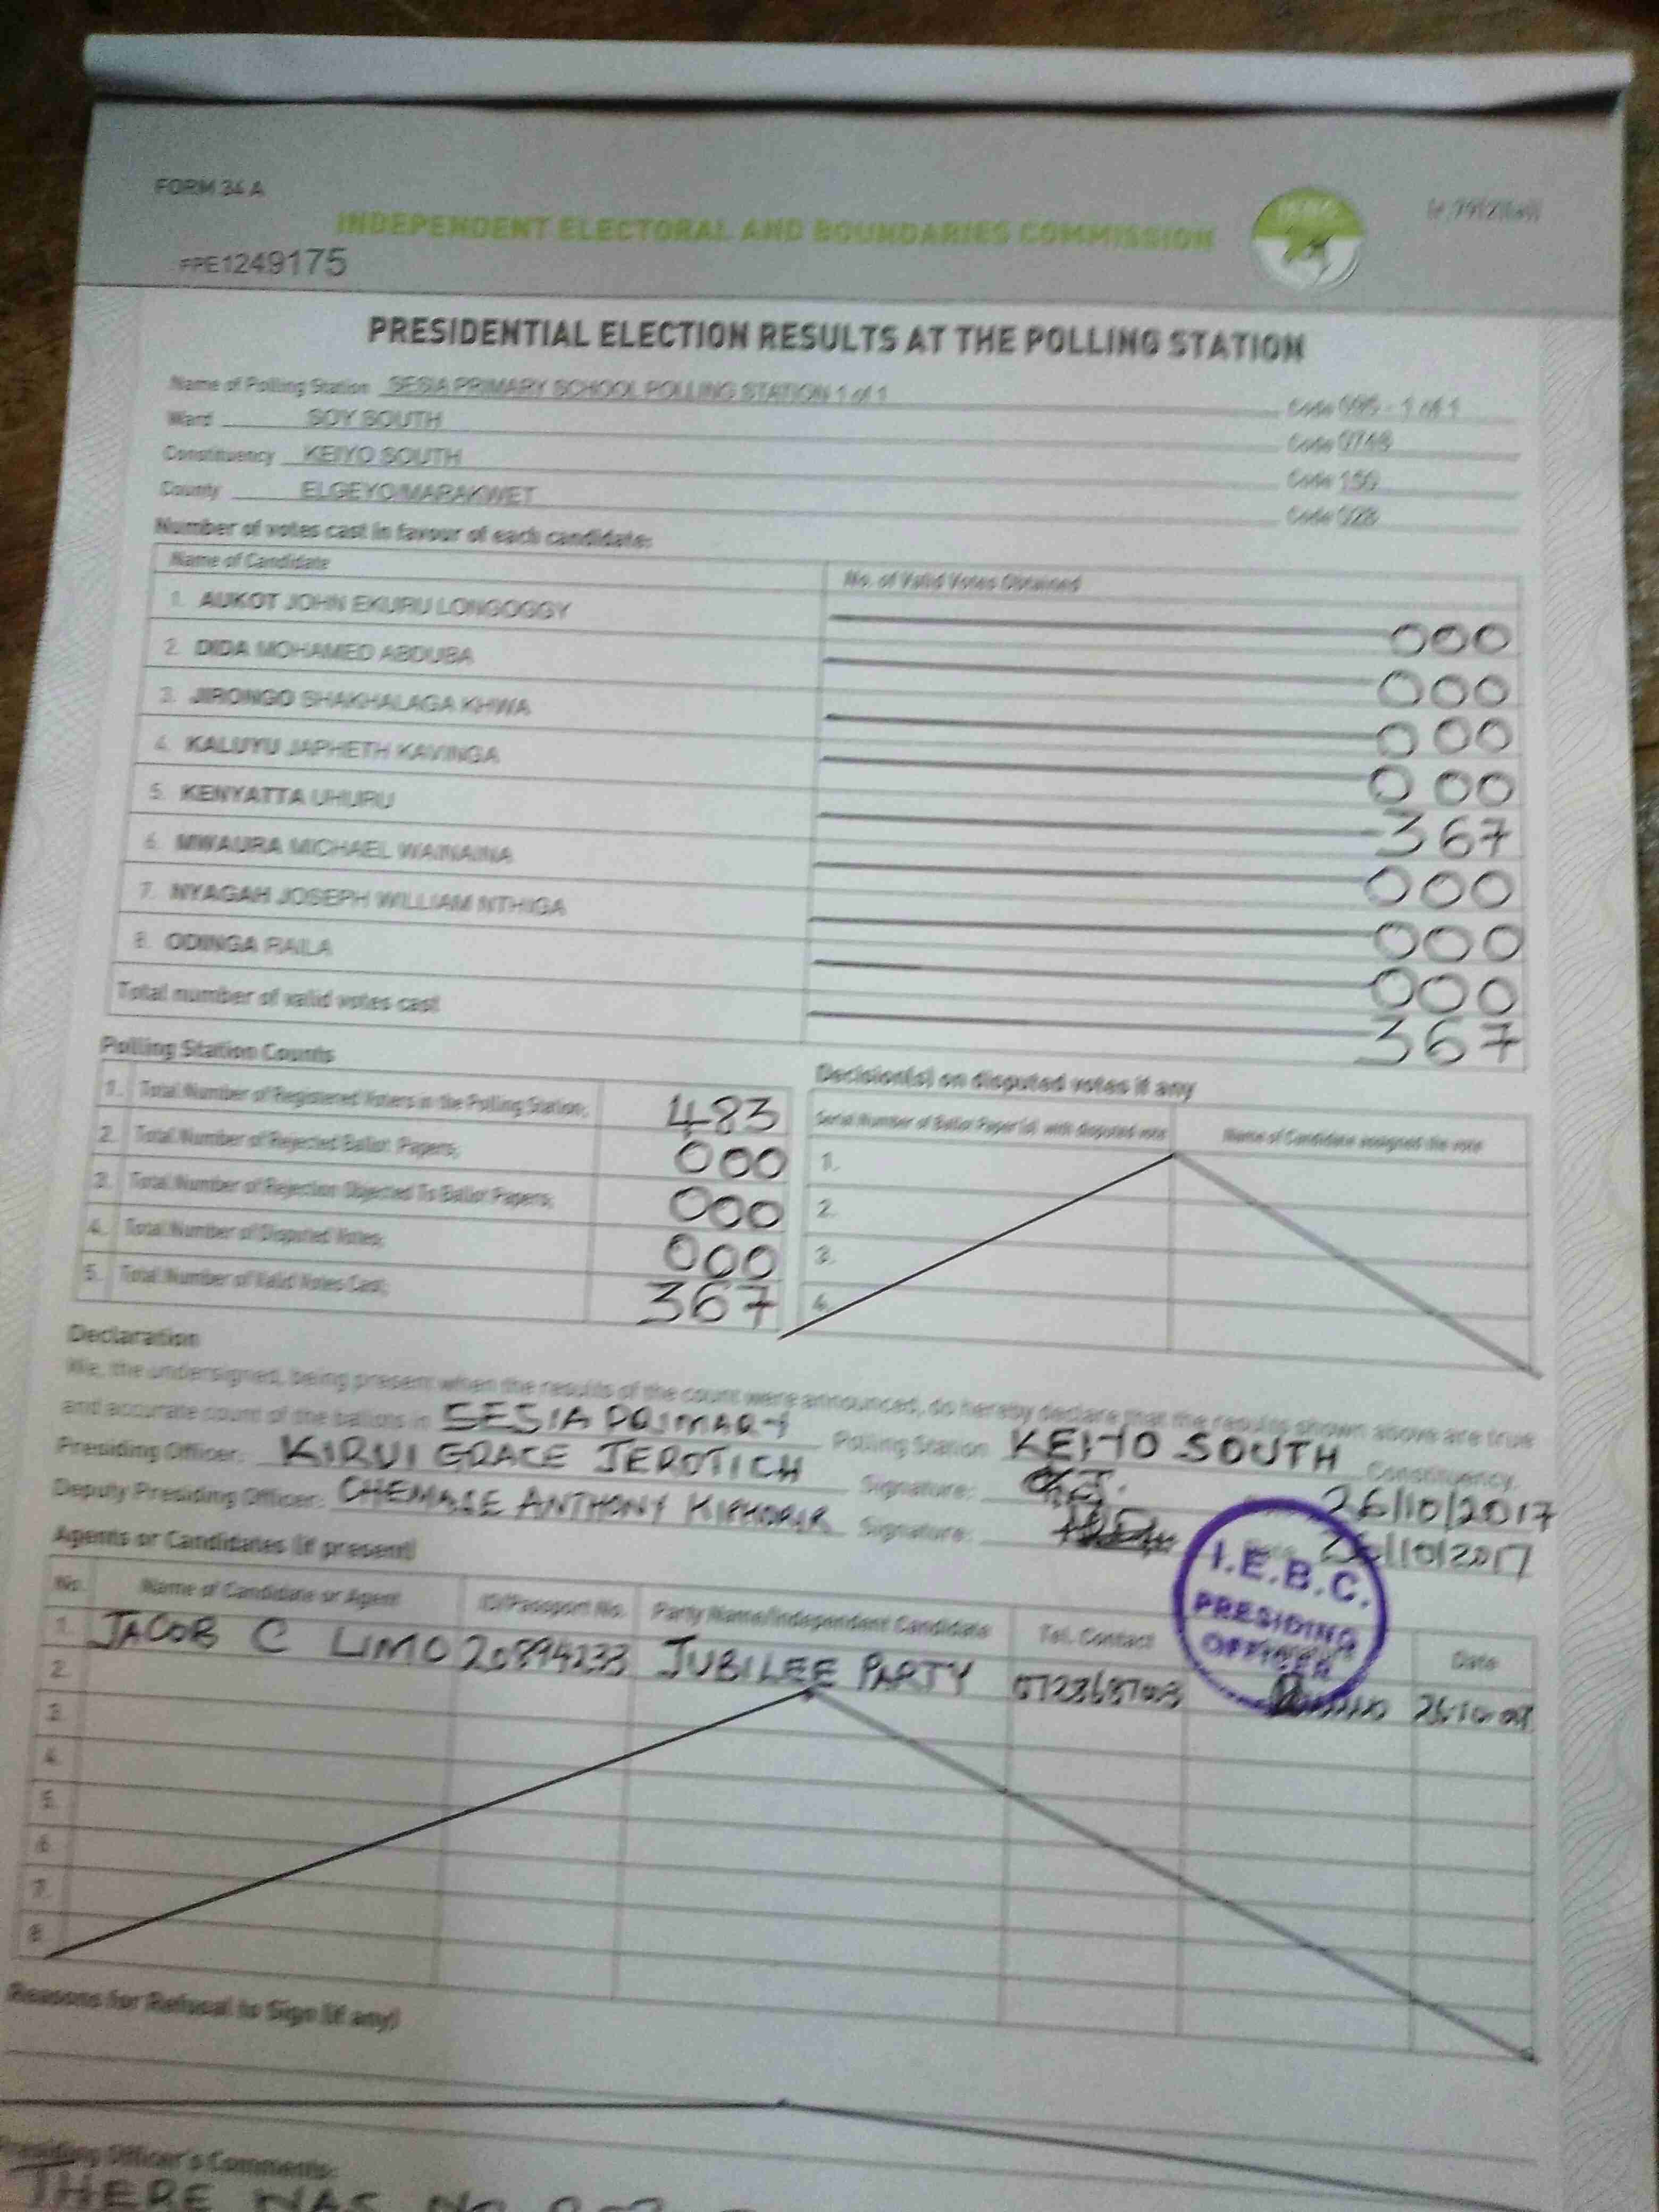 FORM 34 A
INDEPENDENT ELECTORAL AND BOUNDARIES COMMISSION
FPE1249175
PRESIDENTIAL ELECTION RESULTS AT THE POLLING STATION
Name of Polling Station SESIA PRIMARY SCHOOL POLLING STATION 1 of 1 Code 095 - 1 of 1
Ward SOY SOUTH Code 0748
Constituency KEIYO SOUTH Code 150
County ELGEYO/MARAKWET Code 028
Number of votes cast in favour of each candidate:
Name of Candidate No. of Valid Votes Obtained
1. AUKOT JOHN EKURU LONGOGGY 000
2. DIDA MOHAMED ABDUBA 000
3. JIRONGO SHAKHALAGA KHWA 000
4. KALUYU JAPHETH KAVINGA 000
5. KENYATTA UHURU 367
6. MWAURA MICHAEL WAINAINA 000
7. NYAGAH JOSEPH WILLIAM NTHIGA 000
8. ODINGA RAILA 000
Total number of valid votes cast 367
Polling Station Counts
1. Total Number of Registered Voters in the Polling Station; 483
2. Total Number of Rejected Ballot Papers; 000
3. Total Number of Rejection Objected To Ballot Papers; 000
4. Total Number of Disputed Votes; 000
5. Total Number of Valid Votes Cast; 367
Decision(s) on disputed votes if any
Serial Number of Ballot Paper(s) with disputed vote Name of Candidate assigned the vote
1.
2.
3.
4.
Declaration
We, the undersigned, being present when the results of the count were announced, do hereby declare that the results shown above are true
and accurate count of the ballots in SESIA PRIMARY Polling Station KEIYO SOUTH Constituency.
Presiding Officer: KIRUI GRACE JEROTICH Signature: 26/10/2017
Deputy Presiding Officer: ANTHONY Signature: Date 26/10/2017
I.E.B.C. PRESIDING OFFICER
Agents or Candidates (if present)
No. Name of Candidate or Agent ID/Passport No. Party Name/Independent Candidate Tel. Contact Date
1. JACOB C LIMO 20894233 JUBILEE PARTY
2.
3.
4.
5.
6.
7.
8.
Reasons for Refusal to Sign (if any)
Presiding Officer's Comments:
THERE WAS NO